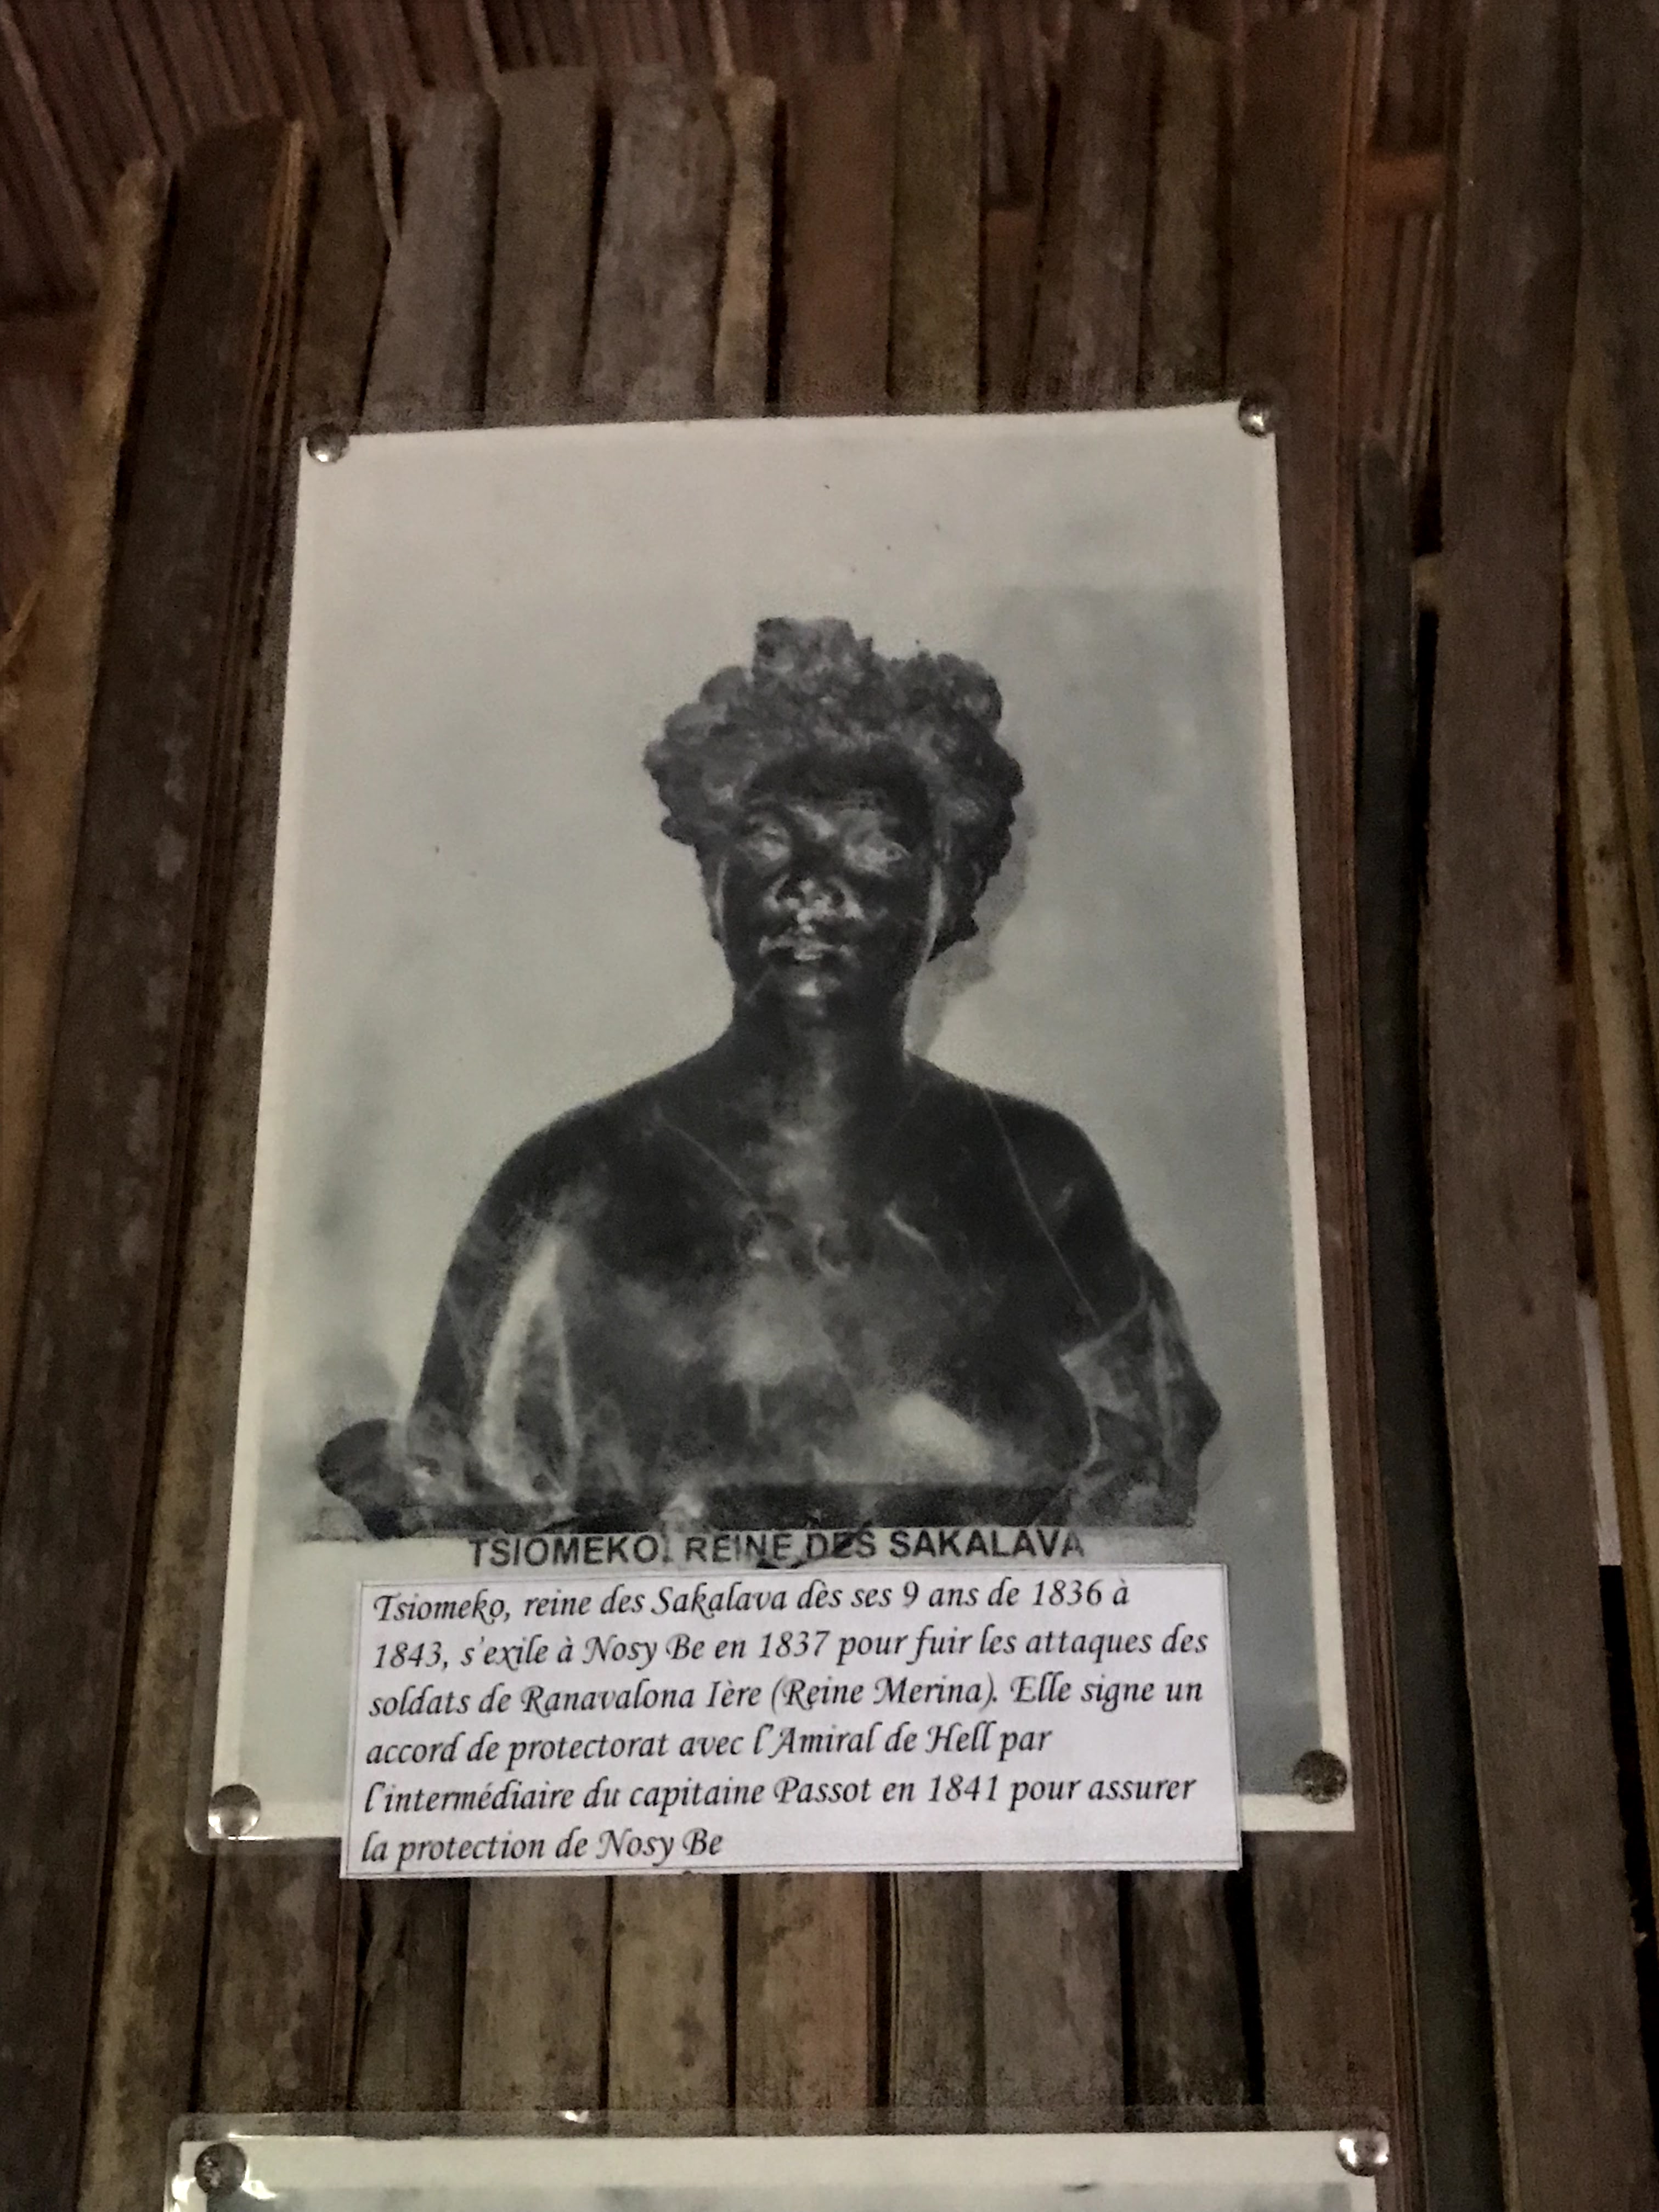 TSIOMEKO, REINE DES SAKALAVA
Tsiomeko, reine des Sakalava dès ses 9 ans de 1836 à
1843, s'exile à Nosy Be en 1837 pour fuir les attaques des
soldats de Ranavalona Ière (Reine Merina). Elle signe un
accord de protectorat avec l'Amiral de Hell par
l'intermédiaire du capitaine Passot en 1841 pour assurer
la protection de Nosy Be